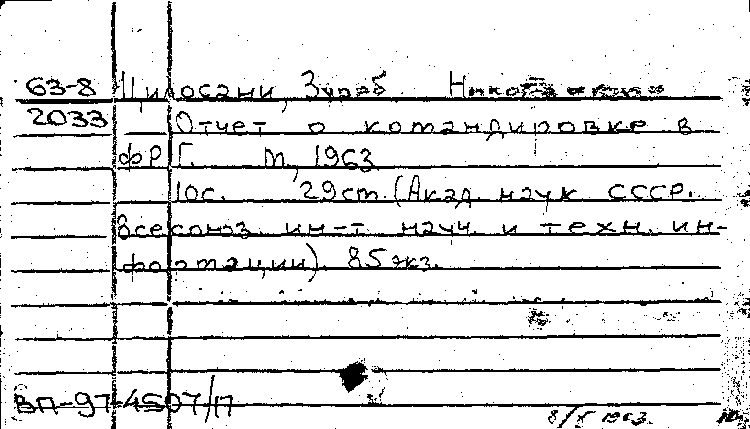 63-8 Цилосани, Зураб
2033 Отчет о командировке в
ФРГ. М, 1963
10с. 29см. (Акад. наук СССР.
Всесоюз. ин-т науч. и техн. ин-
формации). 85 экз.
ВП-97-4507/П
8/X 1963.